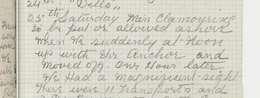 24th "Dello"
25th Saturday Men Clamouring
to be put or allowed ashore
when we suddenly at Noon
up with the anchor and
moved off. One Hour later
We Had a magnificent sight
There were 11 Transports and